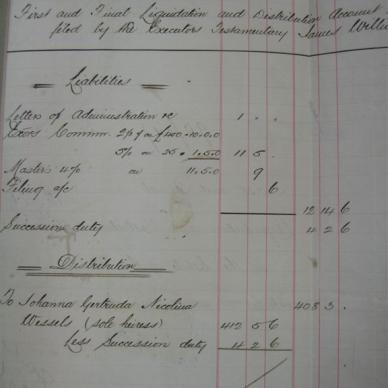 First and Final Liquidation and Distribution Account
filed by the Executors Testamentary James
Liabilities
Letters of Administration &c 1 . .
Exors Comm. 2½
5% on 26 . 1.5.0 11 5 .
Master's 4% on 11.5.0 9
Filing a/c 6
12 14 6
Succession duty 4 2 6
Distribution
403 3 .
To Johanna Gertruda Nicolina
Wessels (sole heiress) 412 5 6
Less Succession duty 4 2 6